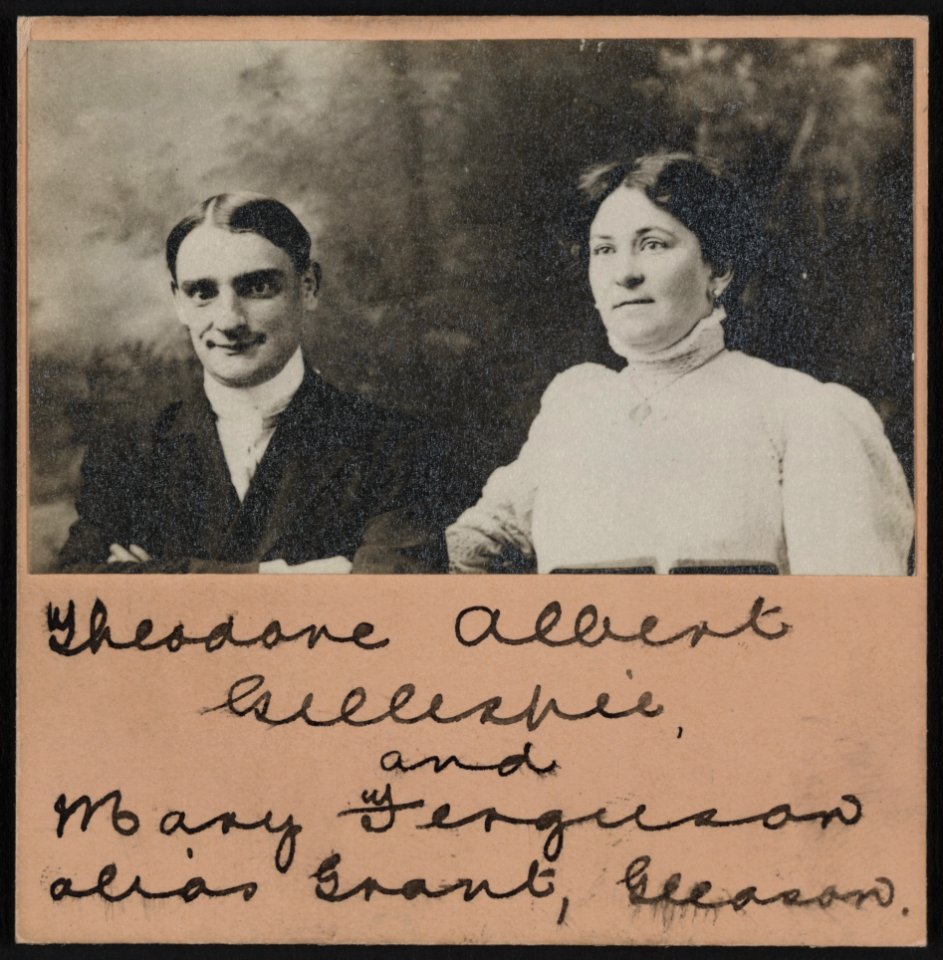 Theodore Albert
Gillespie,
and
Mary Ferguson
alias Grant, Gleason.